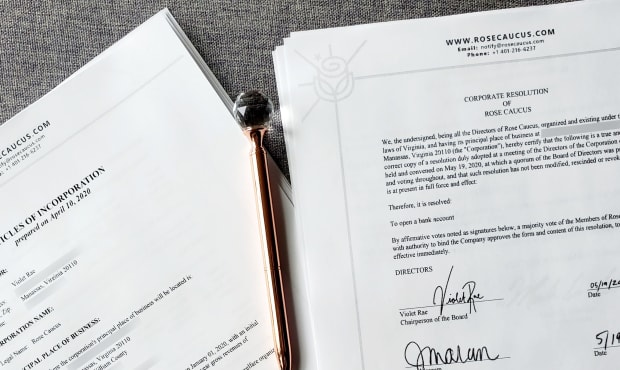 CAUCUS.COM
notify@rosecaucus.com
+1 401 216 6237
ICLES OF INCORPORATION
prepared on April 10, 2020
OR:
Violet Rae
Manassas, Virginia 20110
Zip
ORPORATION NAME:
Legal Name
Rose Caucus
CIPAL PLACE OF BUSINESS:
the corporation's principal place of business will be located is:
Virginia 20110
William County
January 01, 2020, with an initial
gross revenues of
welfare organ
WWW.ROSECAUCUS.COM
Email: notify@rosecaucus.com
Phone: +1 401-216-6237
CORPORATE RESOLUTION
OF
ROSE CAUCUS
We, the undersigned, being all the Directors of Rose Caucus, organized and existing under
laws of Virginia, and having its principal place of business at
Manassas, Virginia 20110 (the "Corporation"), hereby certify that the following is a true and
correct copy of a resolution duly adopted at a meeting of the Directors of the Corporation
held and convened on May 19, 2020, at which a quorum of the Board of Directors was
and voting throughout, and that such resolution has not been modified, rescinded or
is at present in full force and effect:
Therefore, it is resolved:
To open a bank account
By affirmative votes noted as signatures below, a majority vote of the Members of Rose
with authority to bind the Company approves the form and content of this resolution, to
effective immediately.
DIRECTORS
Violet Rae
05/19/20
Violet Rae
Date
Chairperson of the Board
5/19
Date